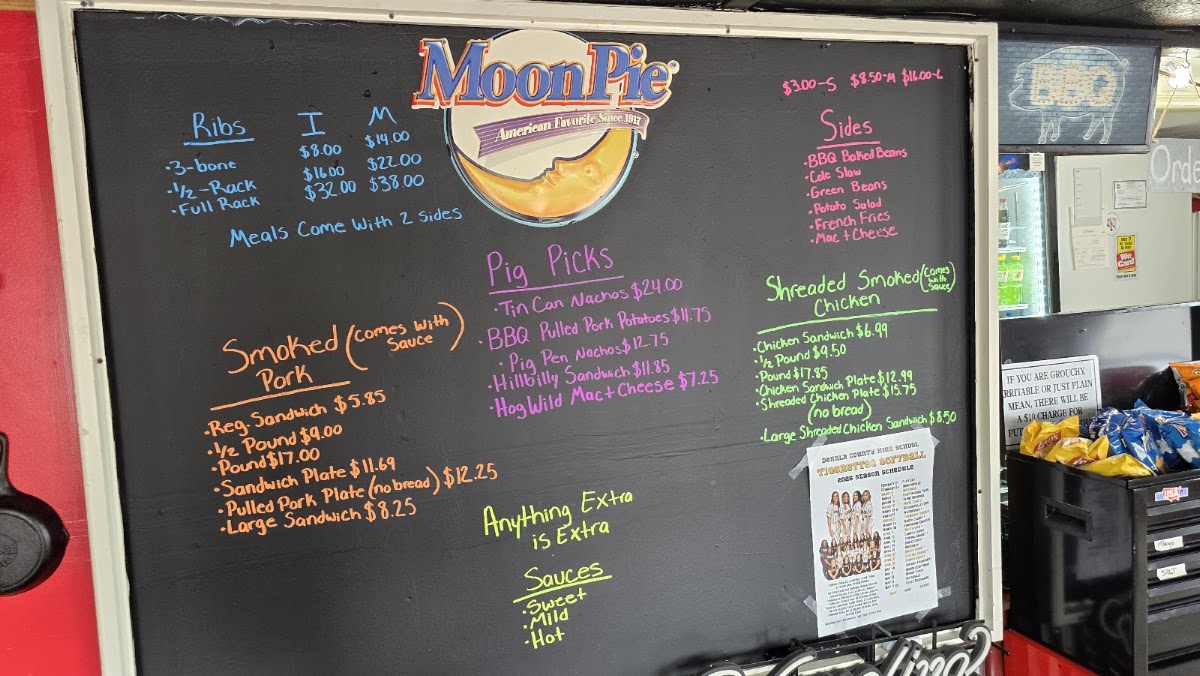 MoonPie
American Favorite Since 1917
Ribs I M
• 3-bone $8.00 $14.00
• 1/2-Rack $16.00 $22.00
• Full Rack $32.00 $38.00
Meals Come With 2 sides
$3.00-S $8.50-M $16.00-L
Sides
• BBQ Baked Beans
• Cole Slaw
• Green Beans
• Potato Salad
• French Fries
• Mac + Cheese
Pig Picks
• Tin Can Nachos $24.00
• BBQ Pulled Pork Potatoes $11.75
• Pig Pen Nachos $12.75
• Hillbilly Sandwich $11.85
• Hog Wild Mac + Cheese $7.25
Smoked Pork (comes with Sauce)
• Reg. Sandwich $5.85
• 1/2 Pound $9.00
• Pound $17.00
• Sandwich Plate $11.69
• Pulled Pork Plate (no bread) $12.25
• Large Sandwich $8.25
Shreaded Smoked Chicken (comes with Sauce)
• Chicken Sandwich $6.99
• 1/2 Pound $9.50
• Pound $17.85
• Chicken Sandwich Plate $12.99
• Shreaded Chicken Plate $15.75
(no bread)
• Large Shreaded Chicken Sandwich $8.50
Anything Extra
is Extra
Sauces
• Sweet
• Mild
• Hot
DEKALB COUNTY HIGH SCHOOL
TIGERETTES SOFTBALL
2025 SEASON SCHEDULE
BBQ
Orde
We Card
IF YOU ARE GROUCHY,
IRRITABLE OR JUST PLAIN
MEAN, THERE WILL BE
A $10 CHARGE FOR
USA
MAYO
SALT